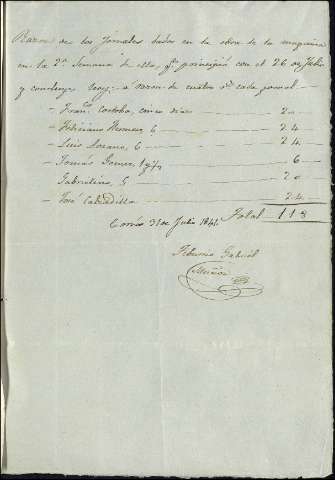 Razon de los jornales dados en la obra de la maquina
en la 2ª Semana de ella, qᵉ principió con el 26 de Julio
y concluye hoy: á razon de cuatro rˢ cada jornal
- Franᶜᵒ Cordoba, cinco dias 20
- Feliciano Herrera, 6 24
- Luis Lozano, 6 24
- Tomás Gomez, 1 y ½ 6
- Gabrielino, 5 20
- José Cabadilla 24
31 de Julio 1841. Total 118
Tiburcio Gabriel
Muñoz